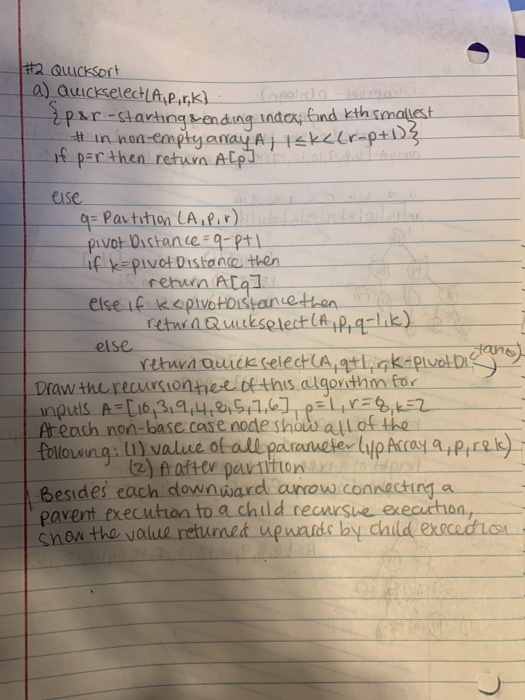 #2 Quicksort
a) Quickselect(A,p,r,k)
{p&r - starting & ending index; find kth smallest
# in non-empty array A; 1≤k<(r-p+1)}
if p=r then return A[p]
else
q = Partition (A,p,r)
pivot Distance = q-p+1
if k=pivot Distance then
return A[q]
else if k<pivotDistance then
return Quickselect(A,p,q-1,k)
else
return quick select(A,q+1,r,k-pivotDistance)
Draw the recursion tree of this algorithm for
inputs A=[10,3,9,4,8,5,7,6], p=1, r=8, k=2
At each non-base case node show all of the
following: (1) value of all parameter (i/p Array a, p, r & k)
(2) A after partition
Besides each downward arrow connecting a
parent execution to a child recursive execution,
show the value returned upwards by child execection